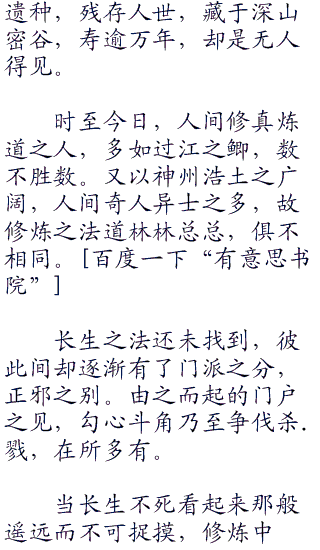 遗种，残存人世，藏于深山
密谷，寿逾万年，却是无人
得见。
时至今日，人间修真炼
道之人，多如过江之鲫，数
不胜数。又以神州浩土之广
阔，人间奇人异士之多，故
修炼之法道林林总总，俱不
相同。[百度一下“有意思书
院”]
长生之法还未找到，彼
此间却逐渐有了门派之分，
正邪之别。由之而起的门户
之见，勾心斗角乃至争伐杀.
戮，在所多有。
当长生不死看起来那般
遥远而不可捉摸，修炼中